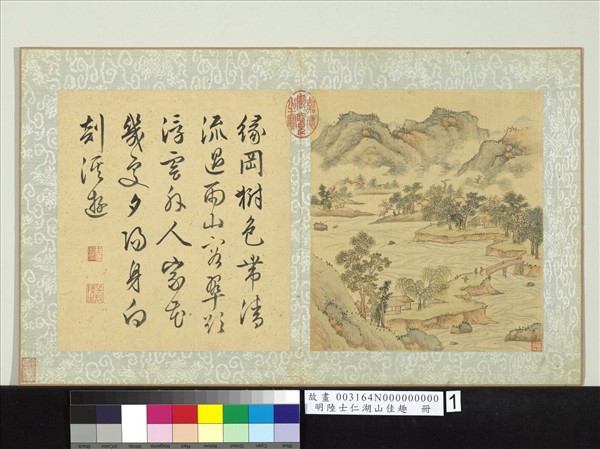 緣岡樹色帶清
流過雨山容翠欲
浮雲外人家花
幾處夕陽身向
剡溪遊
故畫 003164N000000000
明陸士仁湖山佳趣 冊
1